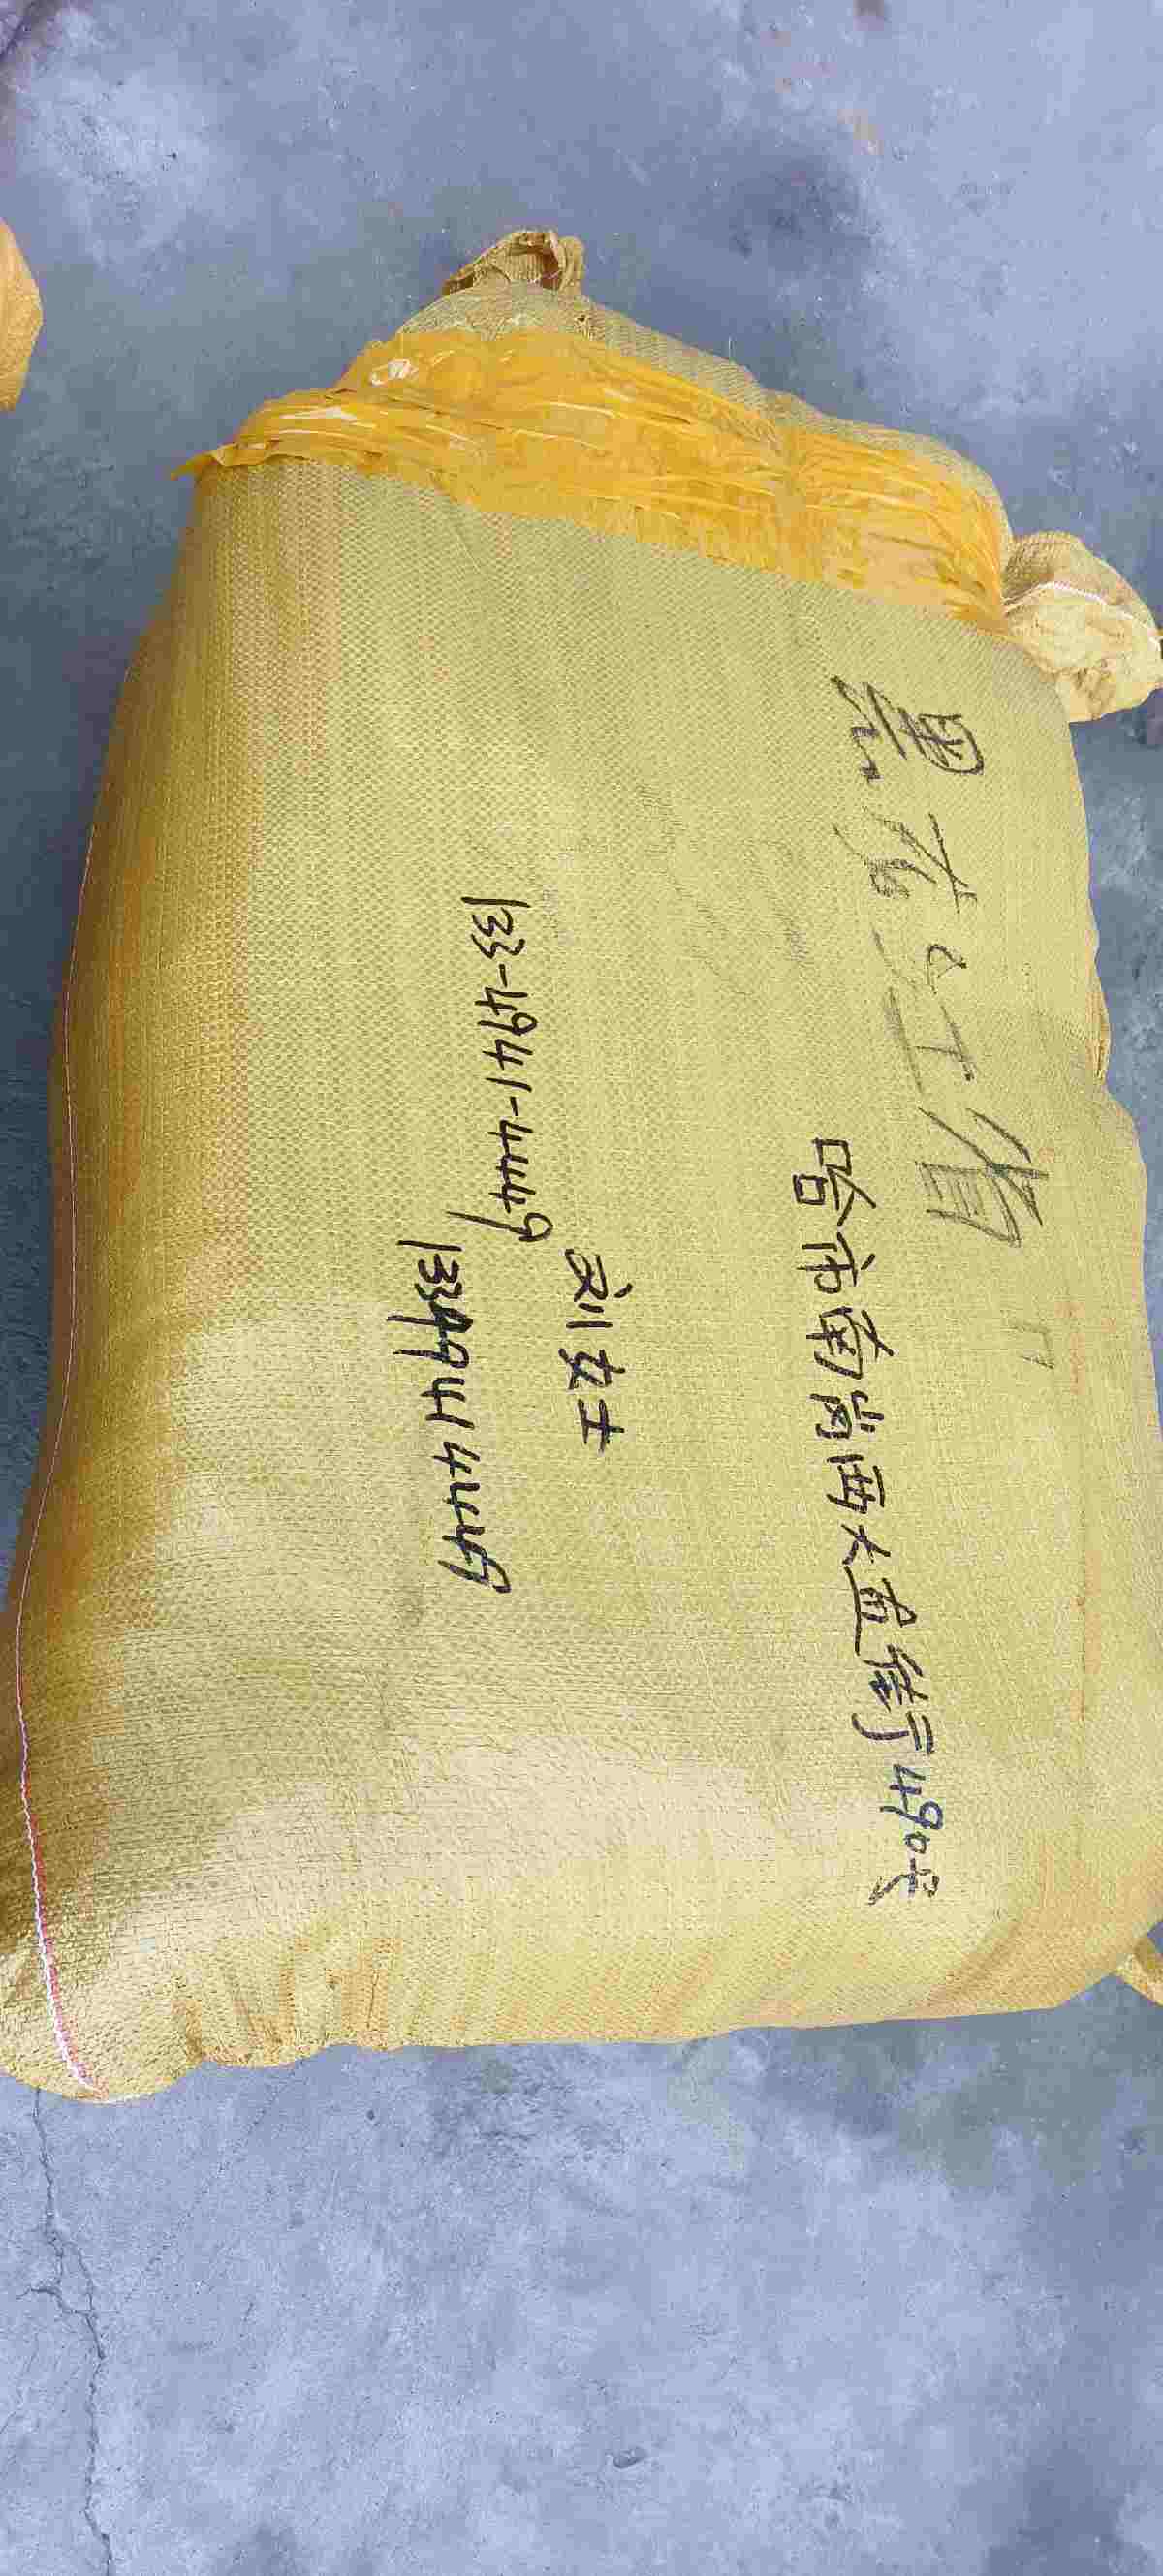 黑龙江省
哈市南岗西大直街490号
刘女士
133-4941-4449
13394144449